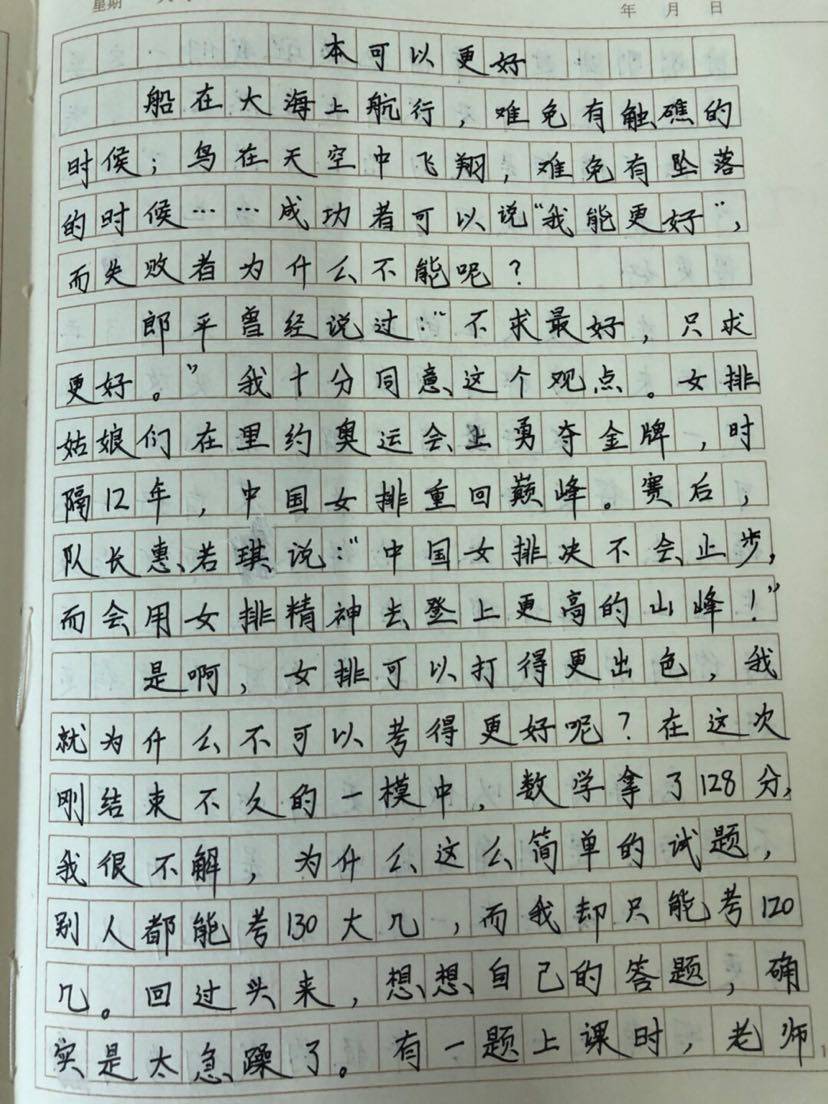 星期
年 月 日
本可以更好
船在大海上航行，难免有触礁的
时候；鸟在天空中飞翔，难免有坠落
的时候……成功者可以说“我能更好”，
而失败者为什么不能呢？
郎平曾经说过：“不求最好，只求
更好。”我十分同意这个观点。女排
姑娘们在里约奥运会上勇夺金牌，时
隔12年，中国女排重回巅峰。赛后，
队长惠若琪说：“中国女排决不会止步，
而会用女排精神去登上更高的山峰！”
是啊，女排可以打得更出色，我
就为什么不可以考得更好呢？在这次
刚结束不久的一模中，数学拿了128分，
我很不解，为什么这么简单的试题，
别人都能考130大几，而我却只能考120
几。回过头来，想想自己的答题，确
实是太急躁了。有一题上课时，老师